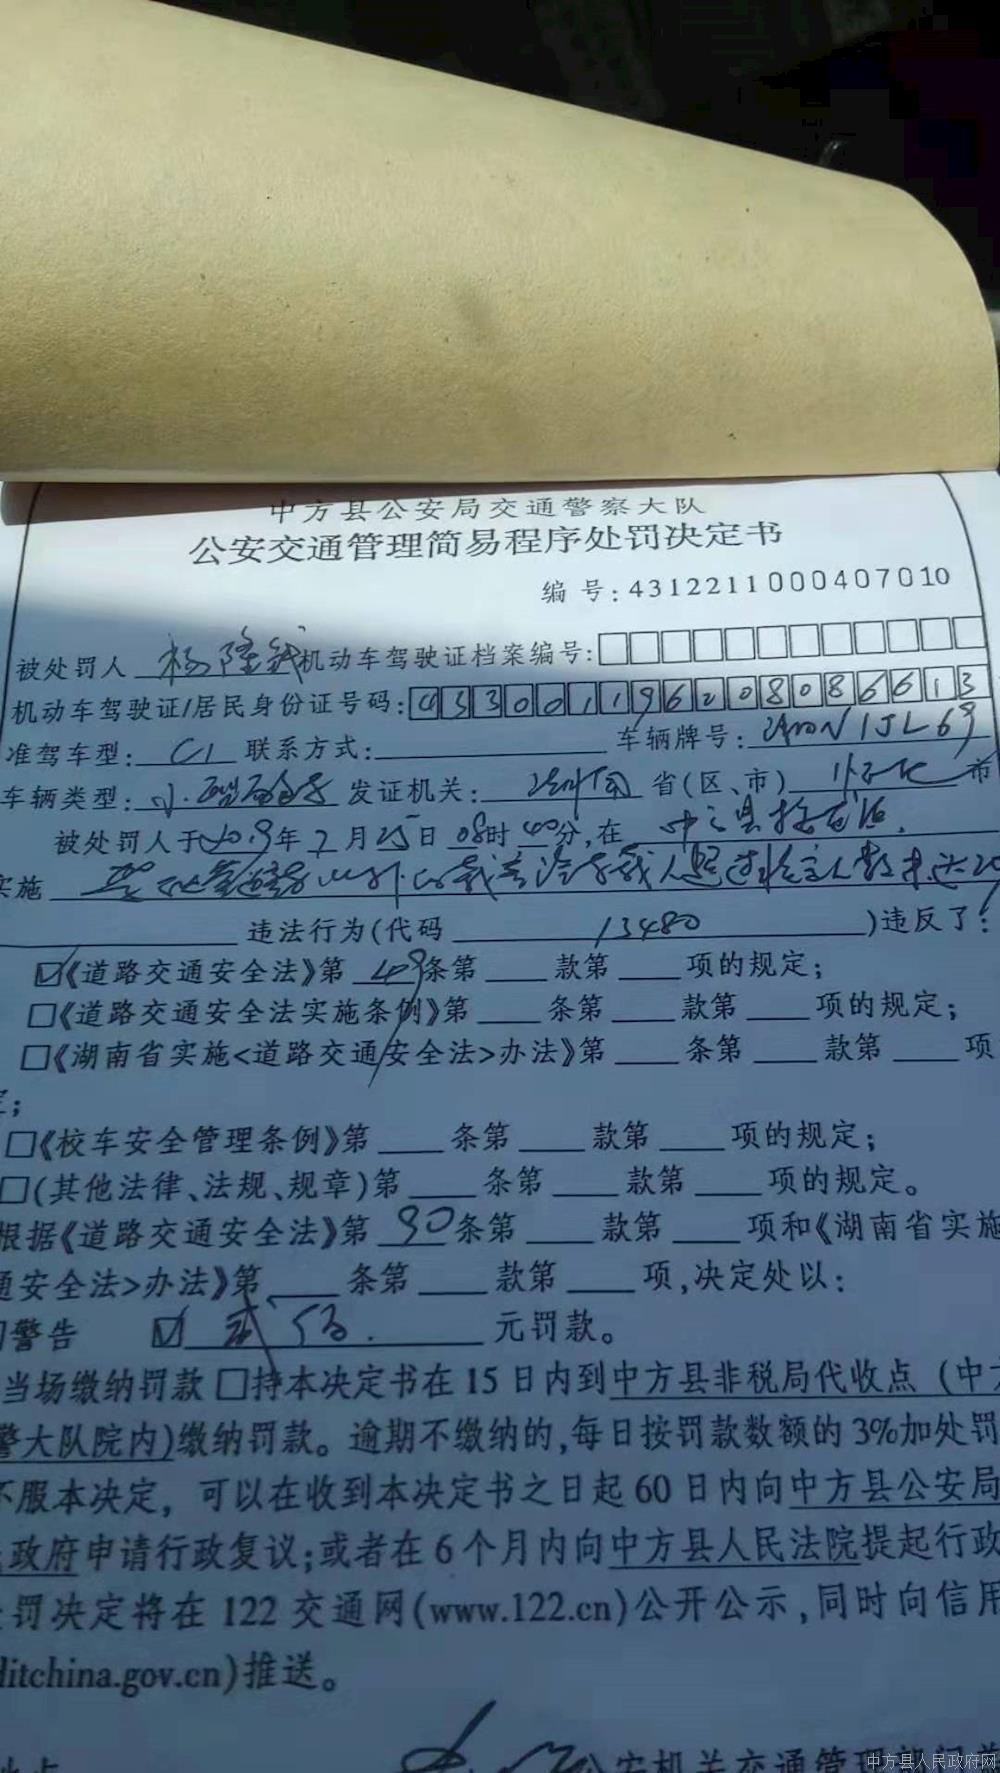 中方县公安局交通警察大队
公安交通管理简易程序处罚决定书
编号:4312211000407010
被处罚人 杨隆 机动车驾驶证档案编号:
机动车驾驶证/居民身份证号码:433001196208086613
准驾车型: C1 联系方式: 车辆牌号: 湘N1JL69
车辆类型: 小型 发证机关: 湖南 省(区、市) 怀化 市
被处罚人于2019年2月25日08时40分,在 中方县
实施 驾驶 以外的载客汽车载人超过核定人数未达20
违法行为(代码 13480 )违反了:
☑《道路交通安全法》第 49 条第 款第 项的规定;
□《道路交通安全法实施条例》第 条第 款第 项的规定;
□《湖南省实施<道路交通安全法>办法》第 条第 款第 项
定;
□《校车安全管理条例》第 条第 款第 项的规定;
□(其他法律、法规、规章)第 条第 款第 项的规定。
根据《道路交通安全法》第 90 条第 款第 项和《湖南省实施
通安全法>办法》第 条第 款第 项,决定处以:
□警告 ☑ 贰佰 元罚款。
当场缴纳罚款 □持本决定书在15日内到中方县非税局代收点(中方
警大队院内)缴纳罚款。逾期不缴纳的,每日按罚款数额的3%加处罚
不服本决定,可以在收到本决定书之日起60日内向中方县公安局
政府申请行政复议;或者在6个月内向中方县人民法院提起行政
罚决定将在122交通网(www.122.cn)公开公示,同时向信用
ditchina.gov.cn)推送。
地点
公安机关交通管理部门
中方县人民政府网